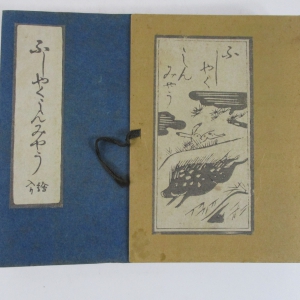 ふ
しやく
しん
みやう
ふしやくしんみやう
繪入り